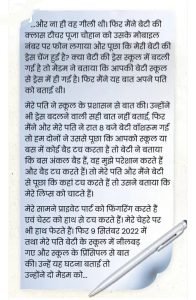 ...और ना ही वह गीली थी। फिर मैंने बेटी की
क्लास टीचर पूजा चौहान को उसके मोबाइल
नंबर पर फोन लगाया और पूछा कि मेरी बेटी की
ड्रेस चेंज हुई है? क्या बेटी की ड्रेस स्कूल में बदली
गई है तो मैडम ने बताया कि आपकी बेटी स्कूल
से ड्रेस में ही गई है। फिर मैंने यह बात अपने पति
को बताई थी।
मेरे पति ने स्कूल के प्रशासन से बात की। उन्होंने
भी ड्रेस बदलने वाली सही बात नहीं बताई, फिर
मैंने और मेरे पति ने रात 8 बजे बेटी वॉशरूम गई
तो हम दोनों ने उससे पूछा कि आपको स्कूल या
बस में कोई बैड टच करता है तो बेटी ने बताया
कि बस अंकल बैड हैं, वह मुझे परेशान करते हैं
और बैड टच करते हैं। तो मेरे पति और मैंने बेटी
से पूछा कि कहां टच करते हैं तो उसने बताया कि
मेरे लिप्स को चाटते हैं।
मेरे सामने प्राइवेट पार्ट को फिंगरिंग करते हैं
एवं चेस्ट को हाथ से टच करते हैं। मेरे चेहरे पर
भी हाथ फेरते हैं। फिर 9 सितंबर 2022 में
तथा मेरे पति बेटी के स्कूल में नीलबड़
गए और स्कूल के प्रिंसिपल से बात
की। उन्हें यह घटना बताई तो
उन्होंने दो मैडम को...